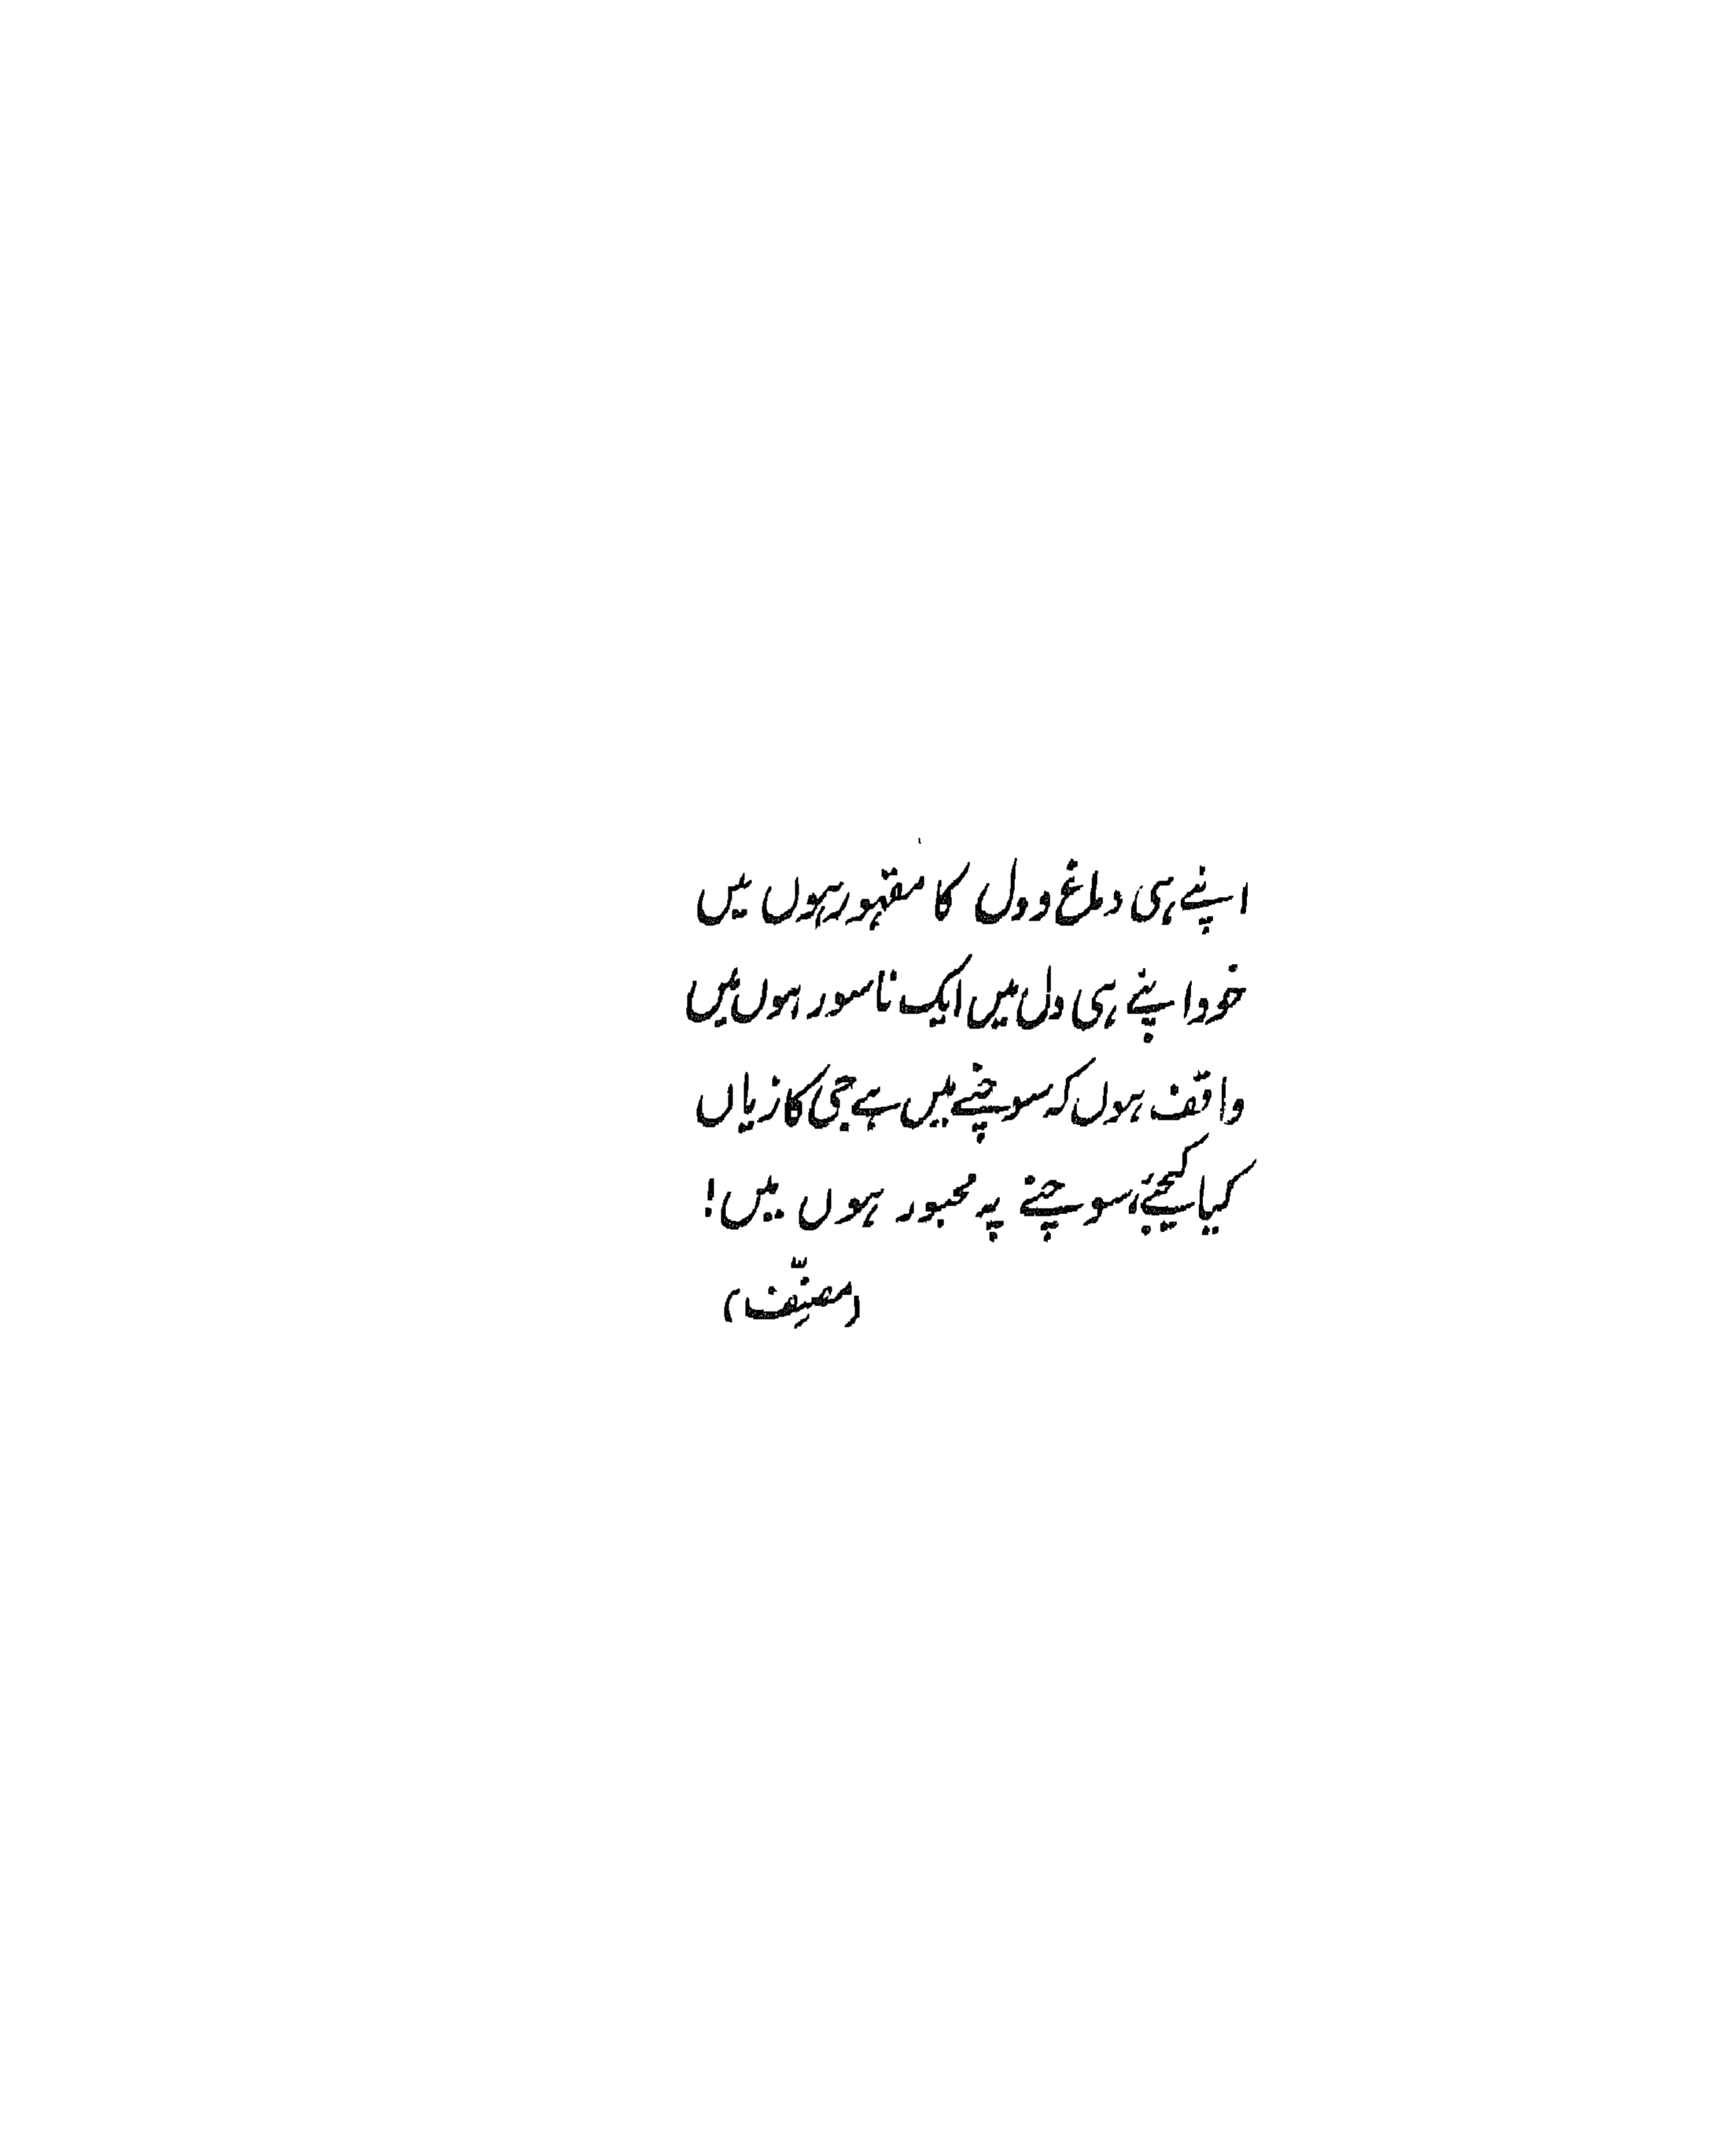 اپنے ہی دماغ و دل کا مقہور ہوں میں
خود اپنے ہی دل میں ایک ناسور ہوں میں
واقف ہوں کہ سوچنے میں ہے جی کا زیاں
کیا کیجئے، سوچنے پہ مجبور ہوں میں!
(مصنّف)